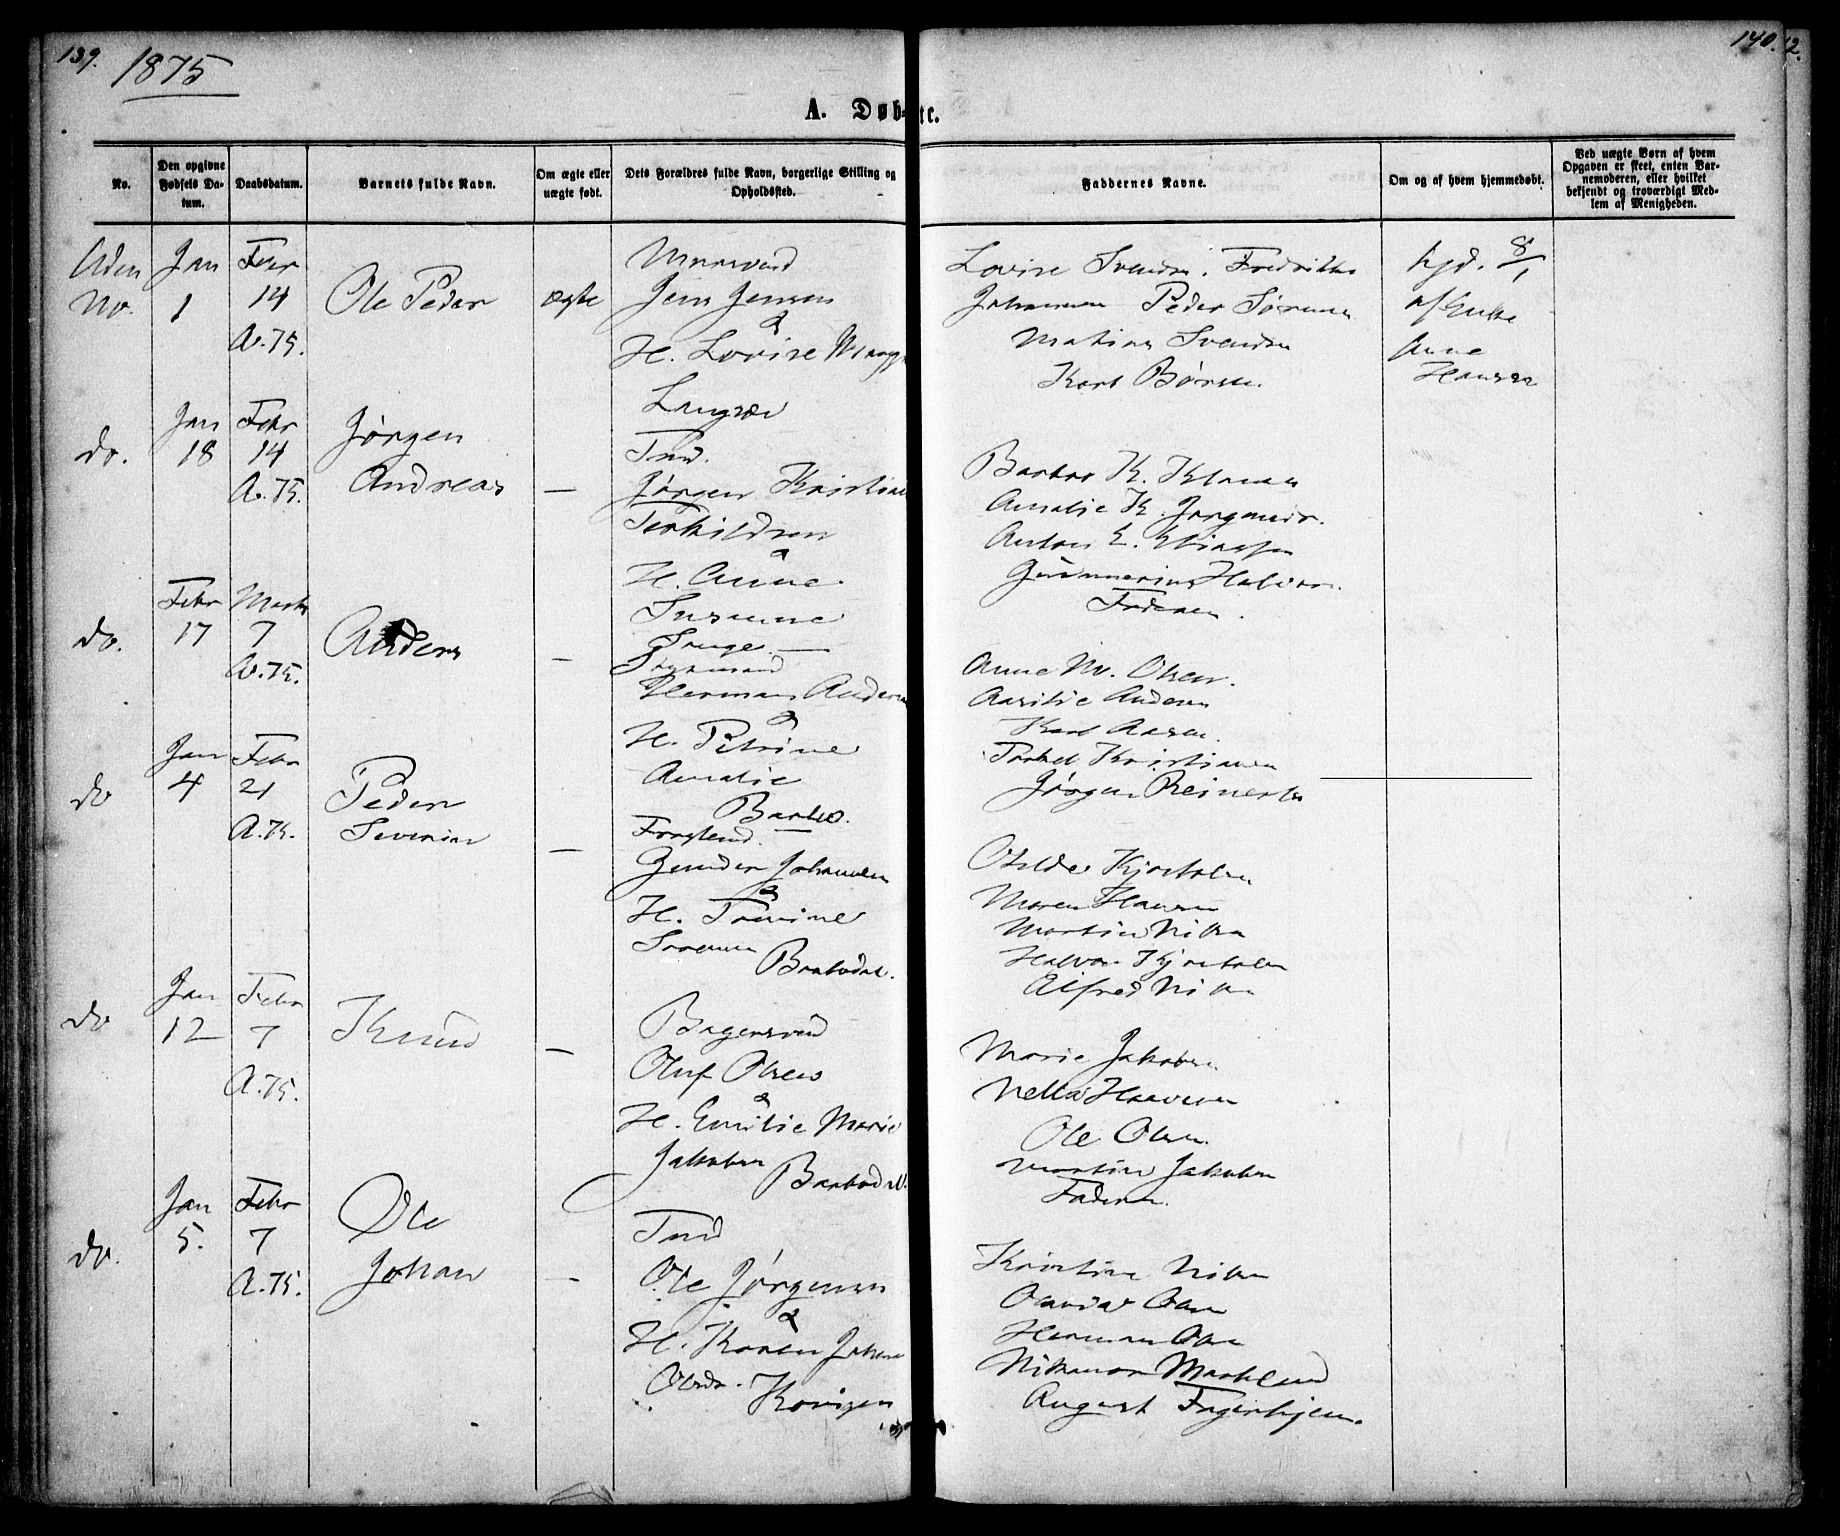 139.
1875
140.
12.
A. Døbte.
No.
Den opgivne Fødsels Datum.
Daabsdatum.
Barnets fulde Navn.
Om ægte eller uægte født.
Dets Forældres fulde Navn, borgerlige Stilling og Opholdssted.
Faddernes Navne.
Om og af hvem hjemmedøbt.
Ved uægte Børn af hvem Opgaven er skeet, enten Barnemoderen, eller hvilket bekjendt og troværdigt Medlem af Menigheden.
Uden No.
Jan 1
Febr 14
A. 75.
Ole Peder
ægte
Jens Jensen
&
H. Lovise
Lovise Svendsen. Fredrikke
Johannesen Peder Sørensen
Mathias Svendsen
Karl Børsen.
hjd. 8/1
af Enke
Anne
Hansen
do.
Jan 18
Febr 14
A. 75.
Jørgen
Andreas
—
Tmd.
Jørgen Kristian
Terkildsen
&
H. Anne
Susanne
Songe —
Amalie K. Jørgensdr.
Anton E. Eliassen
Faderen.
do.
Febr 17
Marts 7
A. 75.
Anders
—
Herman Andersen
&
H. Petrine
Amalie
Barbo.
Anne M. Olsen.
Aasilie Andersen
Karl Aasen.
Kristiansen
Jørgen Reinertsen
do
Jan 4
Febr 21
A. 75.
Peder
Severin
—
Gunder Johannesen
&
H. Tomine
Sørensen
Barbodal.
Otilde Kjostolsen
Maren Hansen
Martin Nilsen
Halvor Kjostolsen
Alfred Nilsen
do
Jan 12
Febr 7
A. 75.
Knud
—
Bagersvend
Oluf Olsen
&
H. Emilie Marie
Jakobsen
Barbodal.
Marie Jakobsen
Nella Haavesen
Ole Olsen
Martin Jakobsen
Faderen.
do.
Jan 5.
Febr 7
A. 75.
Ole
Johan
—
Tmd
Ole Jørgensen
&
H. Karen Johanne
Olsdr.
Kronigen
Kristine Nilsen
Olava Olsen
Herman Olsen
Nikanor Marklund
August Fagerhjem.